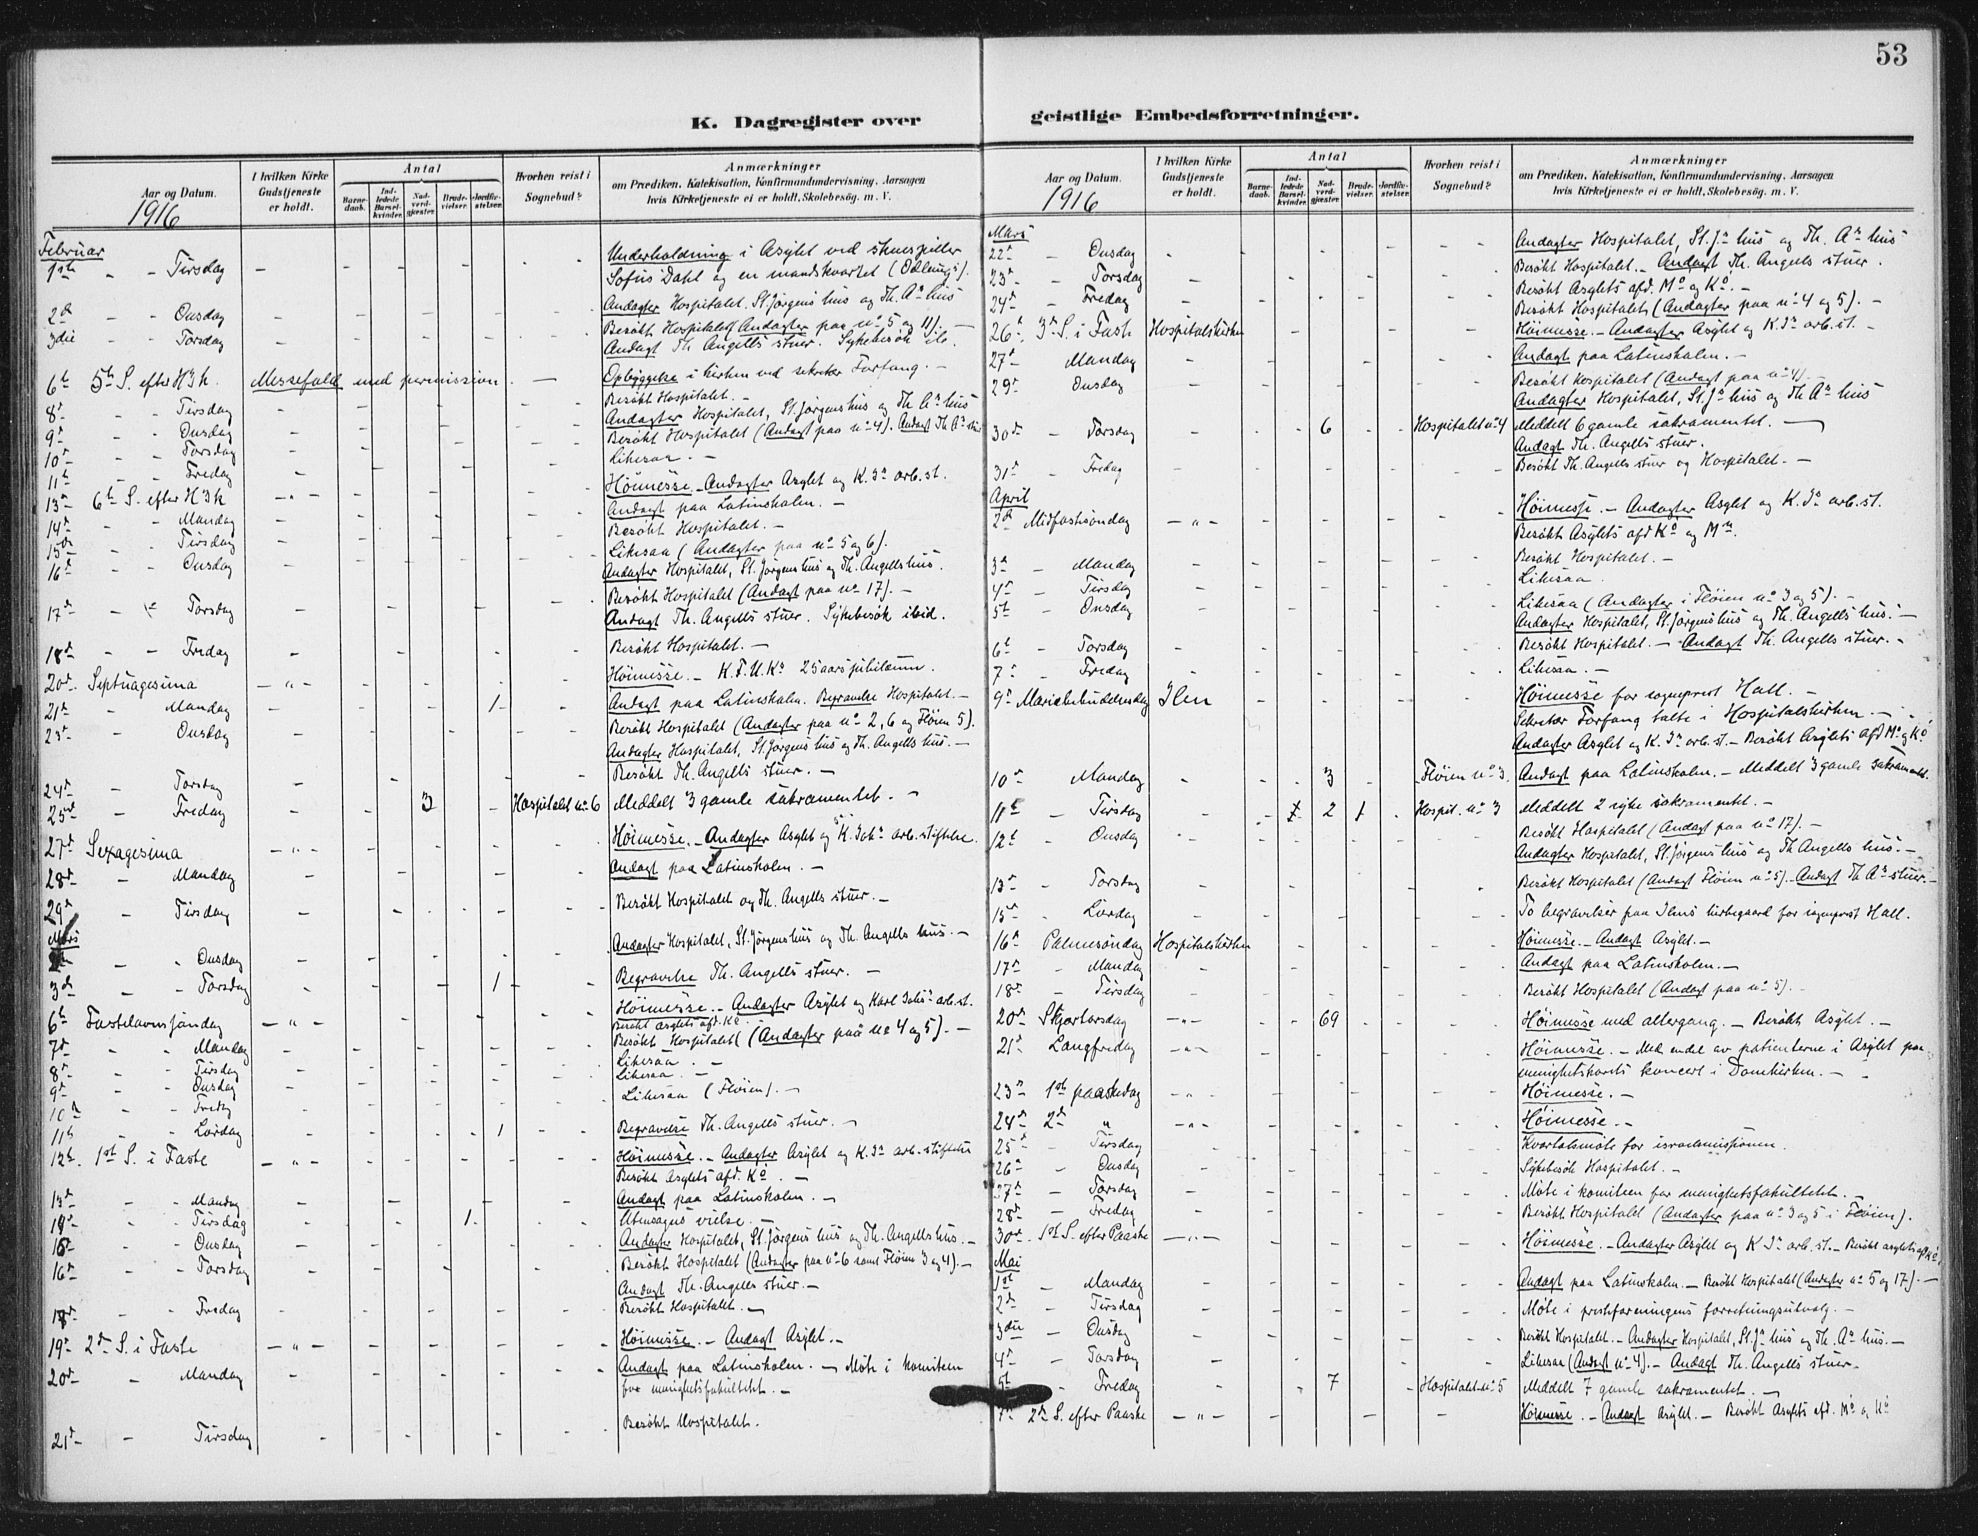 53
K. Dagregister over geistlige Embedsforretninger.
Aar og Datum.
1916
I hvilken Kirke Gudstjeneste er holdt.
Antal
Barnedaab.
Indledede Barselkvinder.
Nadverdgjæster.
Brudevielser.
Jordfæstelser.
Hvorhen reist i Sognebud?
Anmærkninger
om Prædiken, Katekisation, Konfirmandundervisning, Aarsagen
hvis Kirketjeneste ei er holdt, Skolebesøg. m. V.
Februar
1ste - - Tirsdag Underholdning i Asylet ved skuespiller
Sofus Dahl og en mandskvartet (Ödlung's).
2d - - Onsdag Andagter Hospitalet, St. Jörgens hus og Th. As hus
3die - - Torsdag Besökt Hospitalet (Andagter paa no 5 og 11). -
Andagt Th. Angells stuer. Sykebesök ib.
6te 5te S. efter H3k. Messefald med permission. - Opbyggelse i kirken ved sekretær Forfang. -
8de - - Tirsdag Besökt Hospitalet. -
9de - - Onsdag Andagter Hospitalet, St. Jörgens hus og Th. As hus
10de - - Torsdag Besökt Hospitalet (Andagt paa no 4). Andagt Th. As stuer
11te - - Fredag Likesaa. -
13de 6te S. efter H3k - " - Höimesse. - Andagter Asylet og K. Js arb. st.
14de - - Mandag Andagt paa Latinskolen. -
15de - - Tirsdag Besökt Hospitalet. -
16de - - Onsdag Likesaa (Andagter paa no 5 og 6).
Andagter Hospitalet, St. Jörgens hus og Th. Angells hus.
17de - - Torsdag Besökt Hospitalet (Andagt paa no 17). -
Andagt Th. Angells stuer. Sykebesök ibid.
18de - - Fredag Besökt Hospitalet. -
20de Septuagesima - " - Höimesse. - K.F.U.Ks 25 aars jubilæum.
21de - Mandag 1 - Andagt paa Latinskolen. Begravelse Hospitalet. -
23de - Onsdag Besökt Hospitalet (Andagter paa no 2, 6 og Flöien 5).
Andagter Hospitalet, St. Jörgens hus og Th. Angells hus. -
24de - Torsdag Besökt Th. Angells stuer. -
25de - Fredag 3 Hospitalet no 6 Meddelt 3 gamle sakramentet. -
27de Sexagesima - " - Höimesse. - Andagter Asylet og K. Johs arb. stiftelse.
28de - Mandag Andagt paa Latinskolen. -
29de - Tirsdag Besökt Hospitalet og Th. Angells stuer. -
Mars
- - Onsdag Andagter Hospitalet, St. Jörgens hus og Th. Angells hus. -
3de - - Torsdag 1 Begravelse Th. Angells stuer. -
6te Fastelavnssöndag - " - Höimesse. - Andagter Asylet og Karl Johs arb. st.
Besökt asylets afd. Ko -
7de - - Mandag Besökt Hospitalet (Andagter paa no 4 og 5). -
8de - - Tirsdag Likesaa. -
9de - - Onsdag Likesaa. -
10de - - Fredag Likesaa (Flöien). -
11te - - Lördag 1 Begravelse Th. Angells stuer. -
12te 1ste S. i Faste - " - Höimesse. - Andagter Asylet og K. Js arb. stiftelse
Besökt Asylets afd. Ko. -
13de - - Mandag Andagt paa Latinskolen. -
14de - - Tirsdag 1 Utensogns vielse. -
15de - - Onsdag Andagter Hospitalet, St. Jörgens hus og Th. Angells hus. -
16de - - Torsdag Besökt Hospitalet (Andagter paa no 6 samt Flöien 3 og 4). -
Andagt Th. Angells stuer. -
- - Fredag Besökt Hospitalet. -
19de 2den S. i Faste - " - Höimesse. - Andagt Asylet. -
20de - Mandag Andagt paa Latinskolen. - Möte i komiteen
for menighetsfakultetet. -
21de - Tirsdag Besökt Hospitalet.
Aar og Datum.
1916
I hvilken Kirke Gudstjeneste er holdt.
Antal
Barnedaab.
Indledede Barselkvinder.
Nadverdgjæster.
Brudevielser.
Jordfæstelser.
Hvorhen reist i Sognebud?
Anmærkninger
om Prædiken, Katekisation, Konfirmandundervisning, Aarsagen
hvis Kirketjeneste ei er holdt, Skolebesög. m. V.
Mars
22de - Onsdag Andagter Hospitalet, St. Js hus og Th. As hus
23de - Torsdag Besökt Hospitalet. - Andagt Th. Angells stuer.
24de - Fredag Besökt Asylets afd. Mo og Ko. -
Besökt Hospitalet (Andagter paa no 4 og 5). -
26de 3de S. i Faste Hospitalskirken Höimesse. - Andagter Asylet og K. Js arb. st. -
27de - Mandag Andagt paa Latinskolen. -
29de - Onsdag Besökt Hospitalet (Andagt paa no 4). -
Andagter Hospitalet, St. Js hus og Th. As hus
30de - Torsdag 6 Hospitalet no 4 Meddelt 6 gamle sakramentet. -
Andagt Th. Angells stuer.
31de - Fredag Besökt Th. Angells stuer og Hospitalet. -
April
2den Midfastesöndag - " - Höimesse. - Andagter Asylet og K. Js arb. st.
Besökt Asylets afd Ko og Mo.
3de - Mandag Besökt Hospitalet. -
4de - Tirsdag Likesaa.
5te - Onsdag Likesaa (Andagter i Flöien no 3 og 5). -
Andagter Hospitalet, St. Jörgens hus og Th. Angells hus. -
6te - Torsdag Besökt Hospitalet. - Andagt Th. Angells stuer. -
7de - Fredag Likesaa. -
9de Mariæ budskabsdag Ilen Höimesse for sogneprest Hall. -
Sekretær Forfang talte i Hospitalskirken -
Andagter Asylet og K. Js arb. st. - Besökt Asylets afd Mo og Ko
10de Mandag 3 Flöien no 3. Andagt paa Latinskolen. - Meddelt 3 gamle sakramentet.
11te - Tirsdag 2 Hospit. no 3 Meddelt 2 syke sakramentet. -
12te - Onsdag Besökt Hospitalet (Andagt paa no 17). -
Andagter Hospitalet, St. Jörgens hus og Th. Angells hus. -
13de - Torsdag Besökt Hospitalet (Andagt Flöien no 5). - Andagt Th. As stuer. -
15de - Lördag To begravelser paa Ilens kirkegaard for sogneprest Hall.
16de Palmesöndag Hospitalskirken Höimesse. - Andagt Asylet. -
17de - Mandag Andagt paa Latinskolen. -
18de - Tirsdag Besökt Hospitalet (Andagt paa no 5). -
20de Skjærtorsdag - " - 69 Höimesse med altergang. - Besökt Asylet. -
21de Langfredag - " - Höimesse. - Med endel av patienterne i Asylet paa
menighetskorets koncert i Domkirken. -
23de 1ste paaskedag - " - Höimesse. -
24de 2den " - " - Höimesse. -
25de - Tirsdag Kvartalsmöte for israelsmissionen.
26de - Onsdag Sykebesök Hospitalet. -
27de - Torsdag Möte i komiteen for menighetsfakultetet. -
28de - Fredag Besökt Hospitalet (Andagter paa no 3 og 5 i Flöien).
30de 1ste S. efter Paaske - " - Höimesse. - Andagter Asylet og K Js arb. st. - Besökt asylets afd Ko
Mai
1ste - Mandag Andagt paa Latinskolen. - Besökt Hospitalet (Andagter no 5 og 17). -
2den - Tirsdag Möte i presteforeningens forretningsutvalg. -
3die - Onsdag Besökt Hospitalet. - Andagter Hospitalet, St. Js hus og Th. As hus. -
4de - Torsdag Likesaa (Andagt no 4). - Andagt Th. Angells stuer. -
5te - Fredag 7 Hospitalet no 5 Meddelt 7 gamle sakramentet. -
7de 2den S. efter Paaske - " - Höimesse. - Andagt Asylet. - Besökt Asylets afd. Mo og Ko